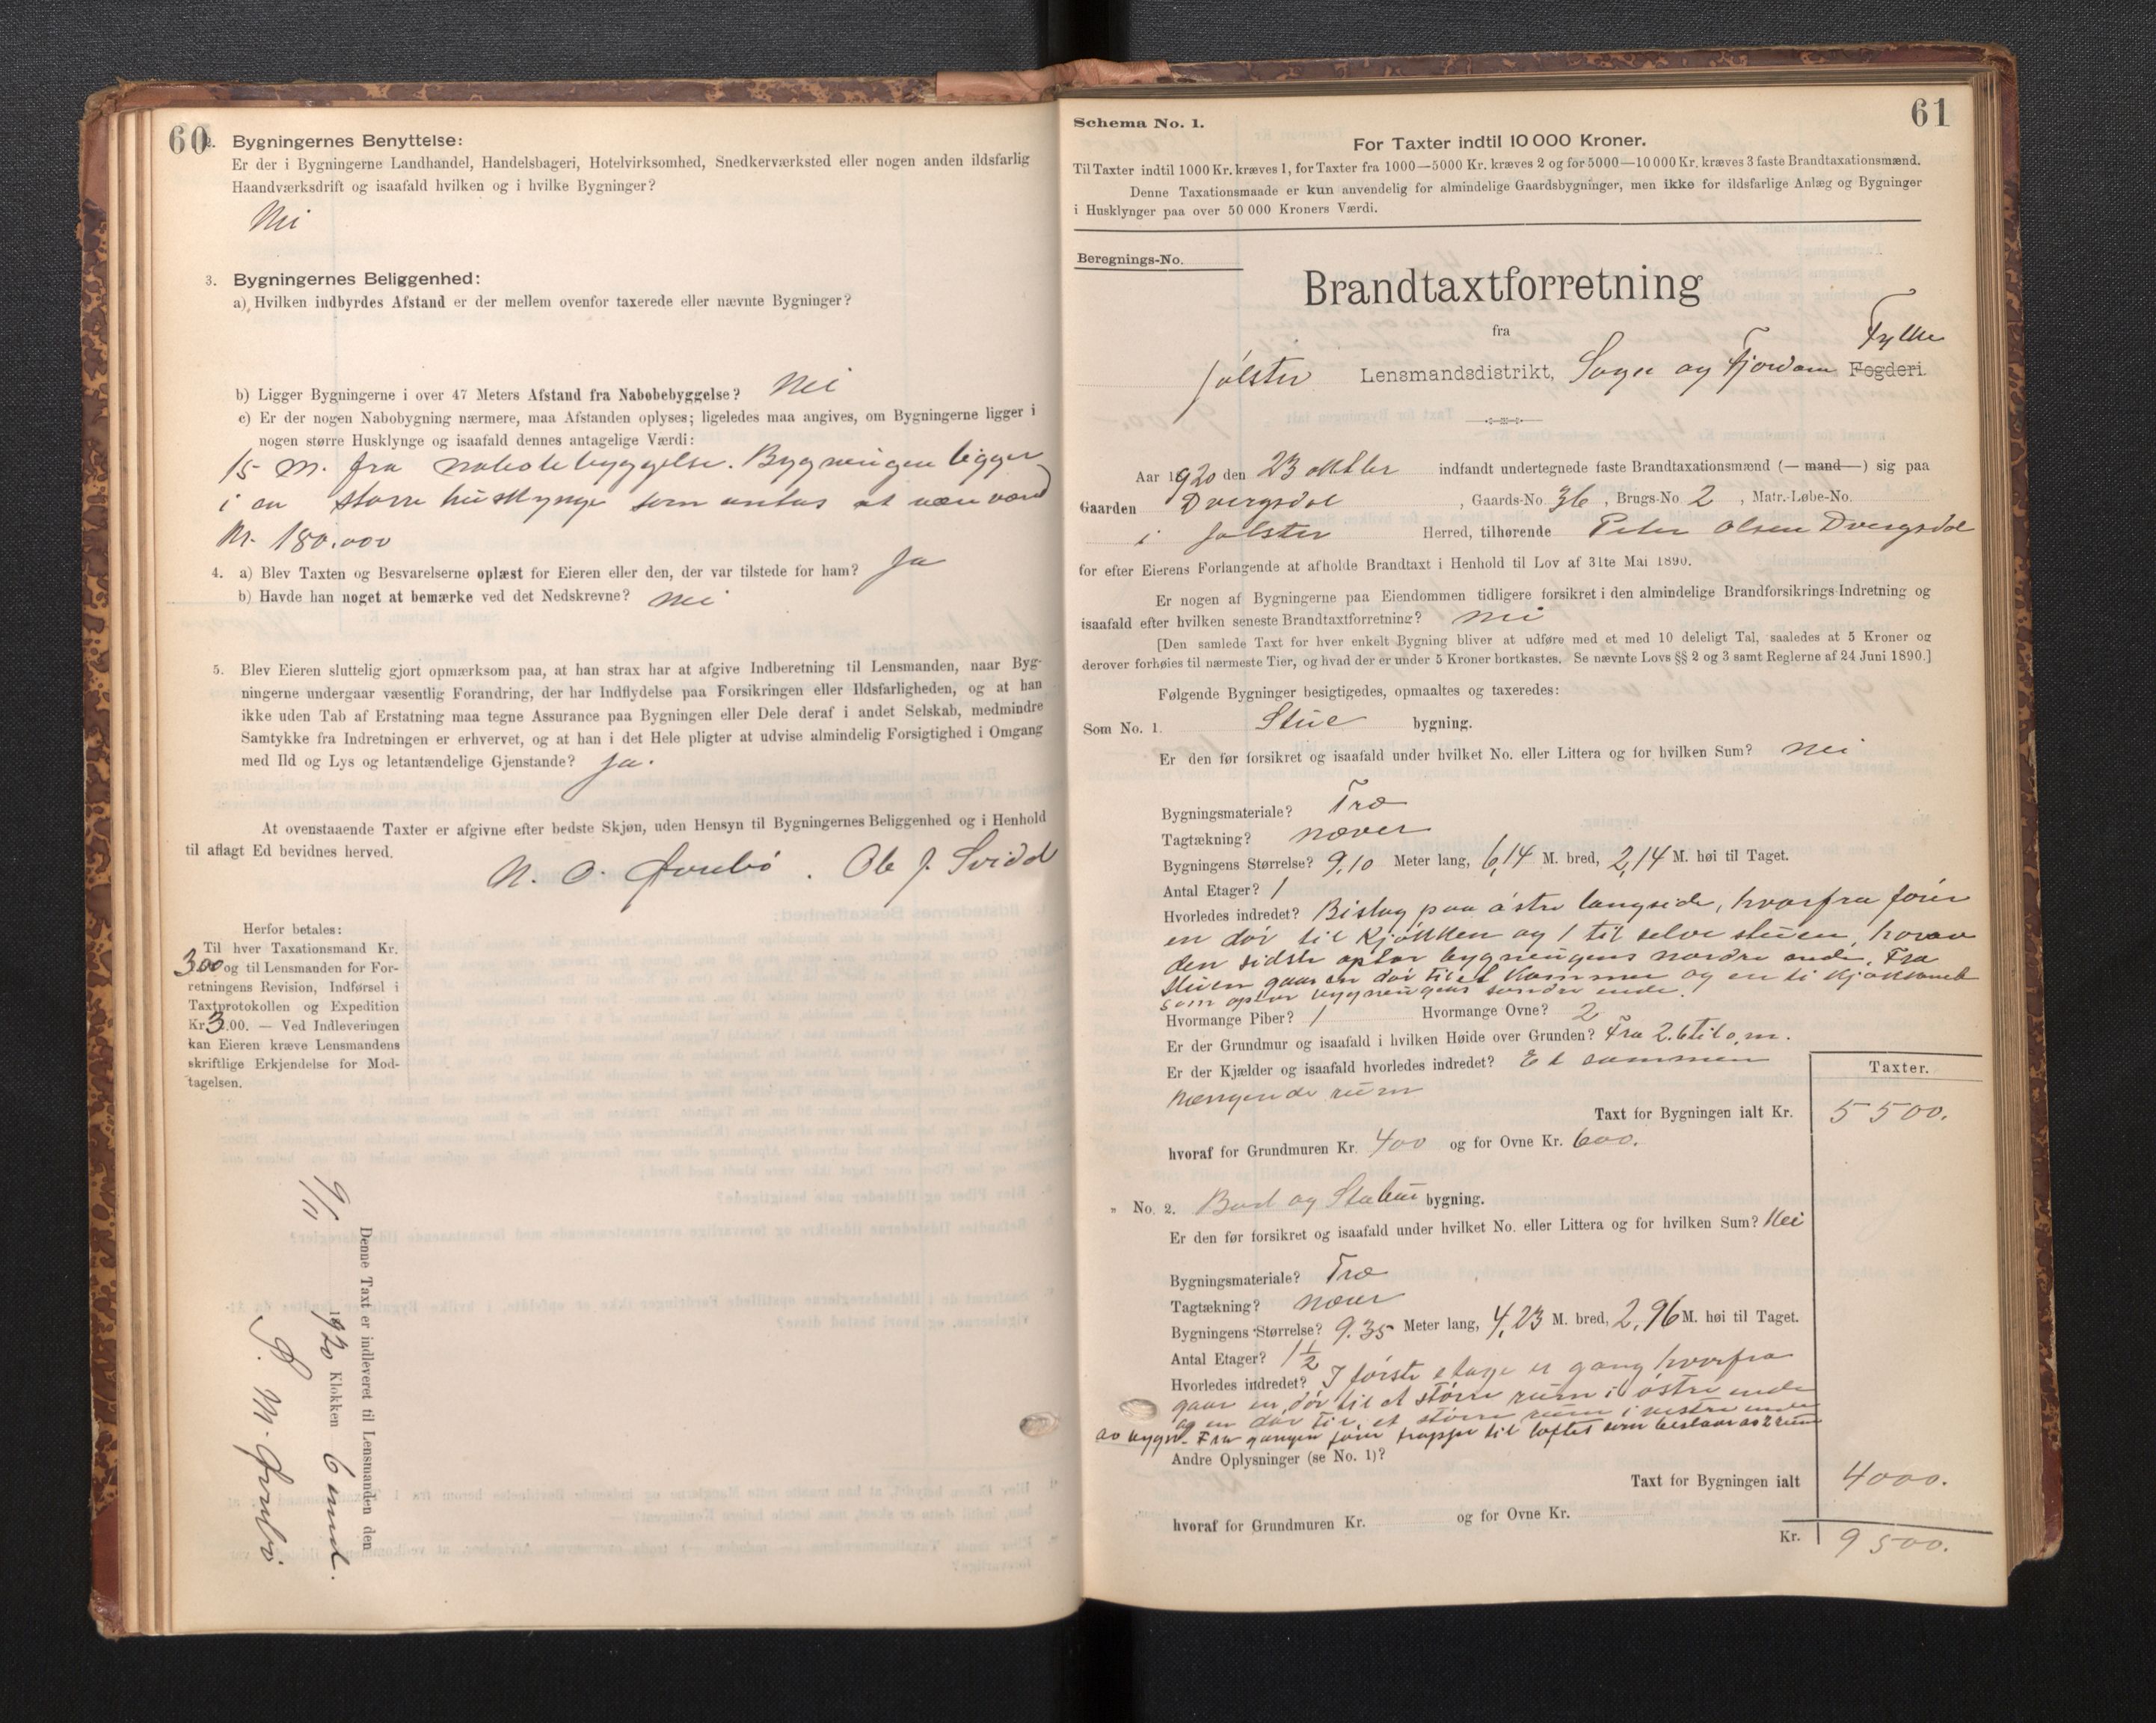 60
2. Bygningernes Benyttelse:
Er der i Bygningerne Landhandel, Handelsbageri, Hotelvirksomhed, Snedkerværksted eller nogen anden ildsfarlig
Haandværksdrift og isaafald hvilken og i hvilke Bygninger?
Nei
3. Bygningernes Beliggenhed:
a) Hvilken indbyrdes Afstand er der mellem ovenfor taxerede eller nævnte Bygninger?
b) Ligger Bygningerne i over 47 Meters Afstand fra Nabobebyggelse? Nei
c) Er der nogen Nabobygning nærmere, maa Afstanden oplyses; ligeledes maa angives, om Bygningerne ligger i
nogen større Husklynge og isaafald dennes antagelige Værdi:
15 m. fra nabobebyggelse. Bygningen ligger
i en større husklynge som antas at være værd
Kr. 180.000
4. a) Blev Taxten og Besvarelserne oplæst for Eieren eller den, der var tilstede for ham? Ja
b) Havde han noget at bemærke ved det Nedskrevne? Nei
5. Blev Eieren sluttelig gjort opmærksom paa, at han strax har at afgive Indberetning til Lensmanden, naar Byg-
ningerne undergaar væsentlig Forandring, der har Indflydelse paa Forsikringen eller Ildsfarligheden, og at han
ikke uden Tab af Erstatning maa tegne Assurance paa Bygningen eller Dele deraf i andet Selskab, medmindre
Samtykke fra Indretningen er erhvervet, og at han i det Hele pligter at udvise almindelig Forsigtighed i Omgang
med Ild og Lys og letantændelige Gjenstande? Ja.
At ovenstaaende Taxter er afgivne efter bedste Skjøn, uden Hensyn til Bygningernes Beliggenhed og i Henhold
til aflagt Ed bevidnes herved.
Ole J. Svidal
Herfor betales:
Til hver Taxationsmand Kr.
3.00 og til Lensmanden for For-
retningens Revision, Indførsel i
Taxtprotokollen og Expedition
Kr. 3.00. — Ved Indleveringen
kan Eieren kræve Lensmandens
skriftlige Erkjendelse for Mod-
tagelsen.
Denne Taxt er indleveret til Lensmanden den
9/11 1920 Klokken 6 emd.
61
Schema No. 1.
For Taxter indtil 10 000 Kroner.
Til Taxter indtil 1000 Kr. kræves 1, for Taxter fra 1000—5000 Kr. kræves 2 og for 5000—10 000 Kr. kræves 3 faste Brandtaxationsmænd.
Denne Taxationsmaade er kun anvendelig for almindelige Gaardsbygninger, men ikke for ildsfarlige Anlæg og Bygninger
i Husklynger paa over 50 000 Kroners Værdi.
Beregnings-No.
Brandtaxtforretning
fra
Jølster Lensmandsdistrikt, Sogn og Fjordane Fogderi. Fylke
Aar 1920 den 23 oktbr indfandt undertegnede faste Brandtaxationsmænd (— mand —) sig paa
Gaarden Dvergsdal, Gaards-No. 36, Brugs-No. 2, Matr.-Løbe-No.
i Jølster Herred, tilhørende Peter Olsen Dvergsdal
for efter Eierens Forlangende at afholde Brandtaxt i Henhold til Lov af 31te Mai 1890.
Er nogen af Bygningerne paa Eiendommen tidligere forsikret i den almindelige Brandforsikrings-Indretning og
isaafald efter hvilken seneste Brandtaxtforretning? Nei
[Den samlede Taxt for hver enkelt Bygning bliver at udføre med et med 10 deleligt Tal, saaledes at 5 Kroner og
derover forhøies til nærmeste Tier, og hvad der er under 5 Kroner bortkastes. Se nævnte Lovs §§ 2 og 3 samt Reglerne af 24 Juni 1890.]
Følgende Bygninger besigtigedes, opmaaltes og taxeredes:
Som No. 1. Stue bygning.
Er den før forsikret og isaafald under hvilket No. eller Littera og for hvilken Sum? Nei
Bygningsmateriale? Træ
Tagtækning? næver
Bygningens Størrelse? 9,10 Meter lang, 6,14 M. bred, 2,14 M. høi til Taget.
Antal Etager? 1
Hvorledes indredet? Bislag paa østre langside, hvorfra fører
en dør til kjøkken og 1 til selve stuen, hvorav
den sidste optar bygningens nordre ende. Fra
stuen gaar en dør til et kammer og en til kjøkkenet
som optar bygningens søndre ende.
Hvormange Piber? 1 Hvormange Ovne? 2
Er der Grundmur og isaafald i hvilken Høide over Grunden? Fra 2.6 til 0 m.
Er der Kjælder og isaafald hvorledes indredet? Et sammen
hængende rum
Taxter.
Taxt for Bygningen ialt Kr. 5500.
hvoraf for Grundmuren Kr. 400 og for Ovne Kr. 600.
„ No. 2. Bud og Stabur bygning.
Er den før forsikret og isaafald under hvilket No. eller Littera og for hvilken Sum? Nei
Bygningsmateriale? Træ
Tagtækning? næver
Bygningens Størrelse? 9.35 Meter lang, 4,23 M. bred, 2,96 M. høi til Taget.
Antal Etager? 1 1/2
Hvorledes indredet? I første etage er gang hvorfra
gaar en dør til et større rum i østre ende
og en dør til et større rum i vestre ende
av bygn. Fra gangen fører trappe til loftet som bestaar av 2 rum
Andre Oplysninger (se No. 1)?
Taxt for Bygningen ialt 4000.
hvoraf for Grundmuren Kr. og for Ovne Kr.
Kr. 9500.